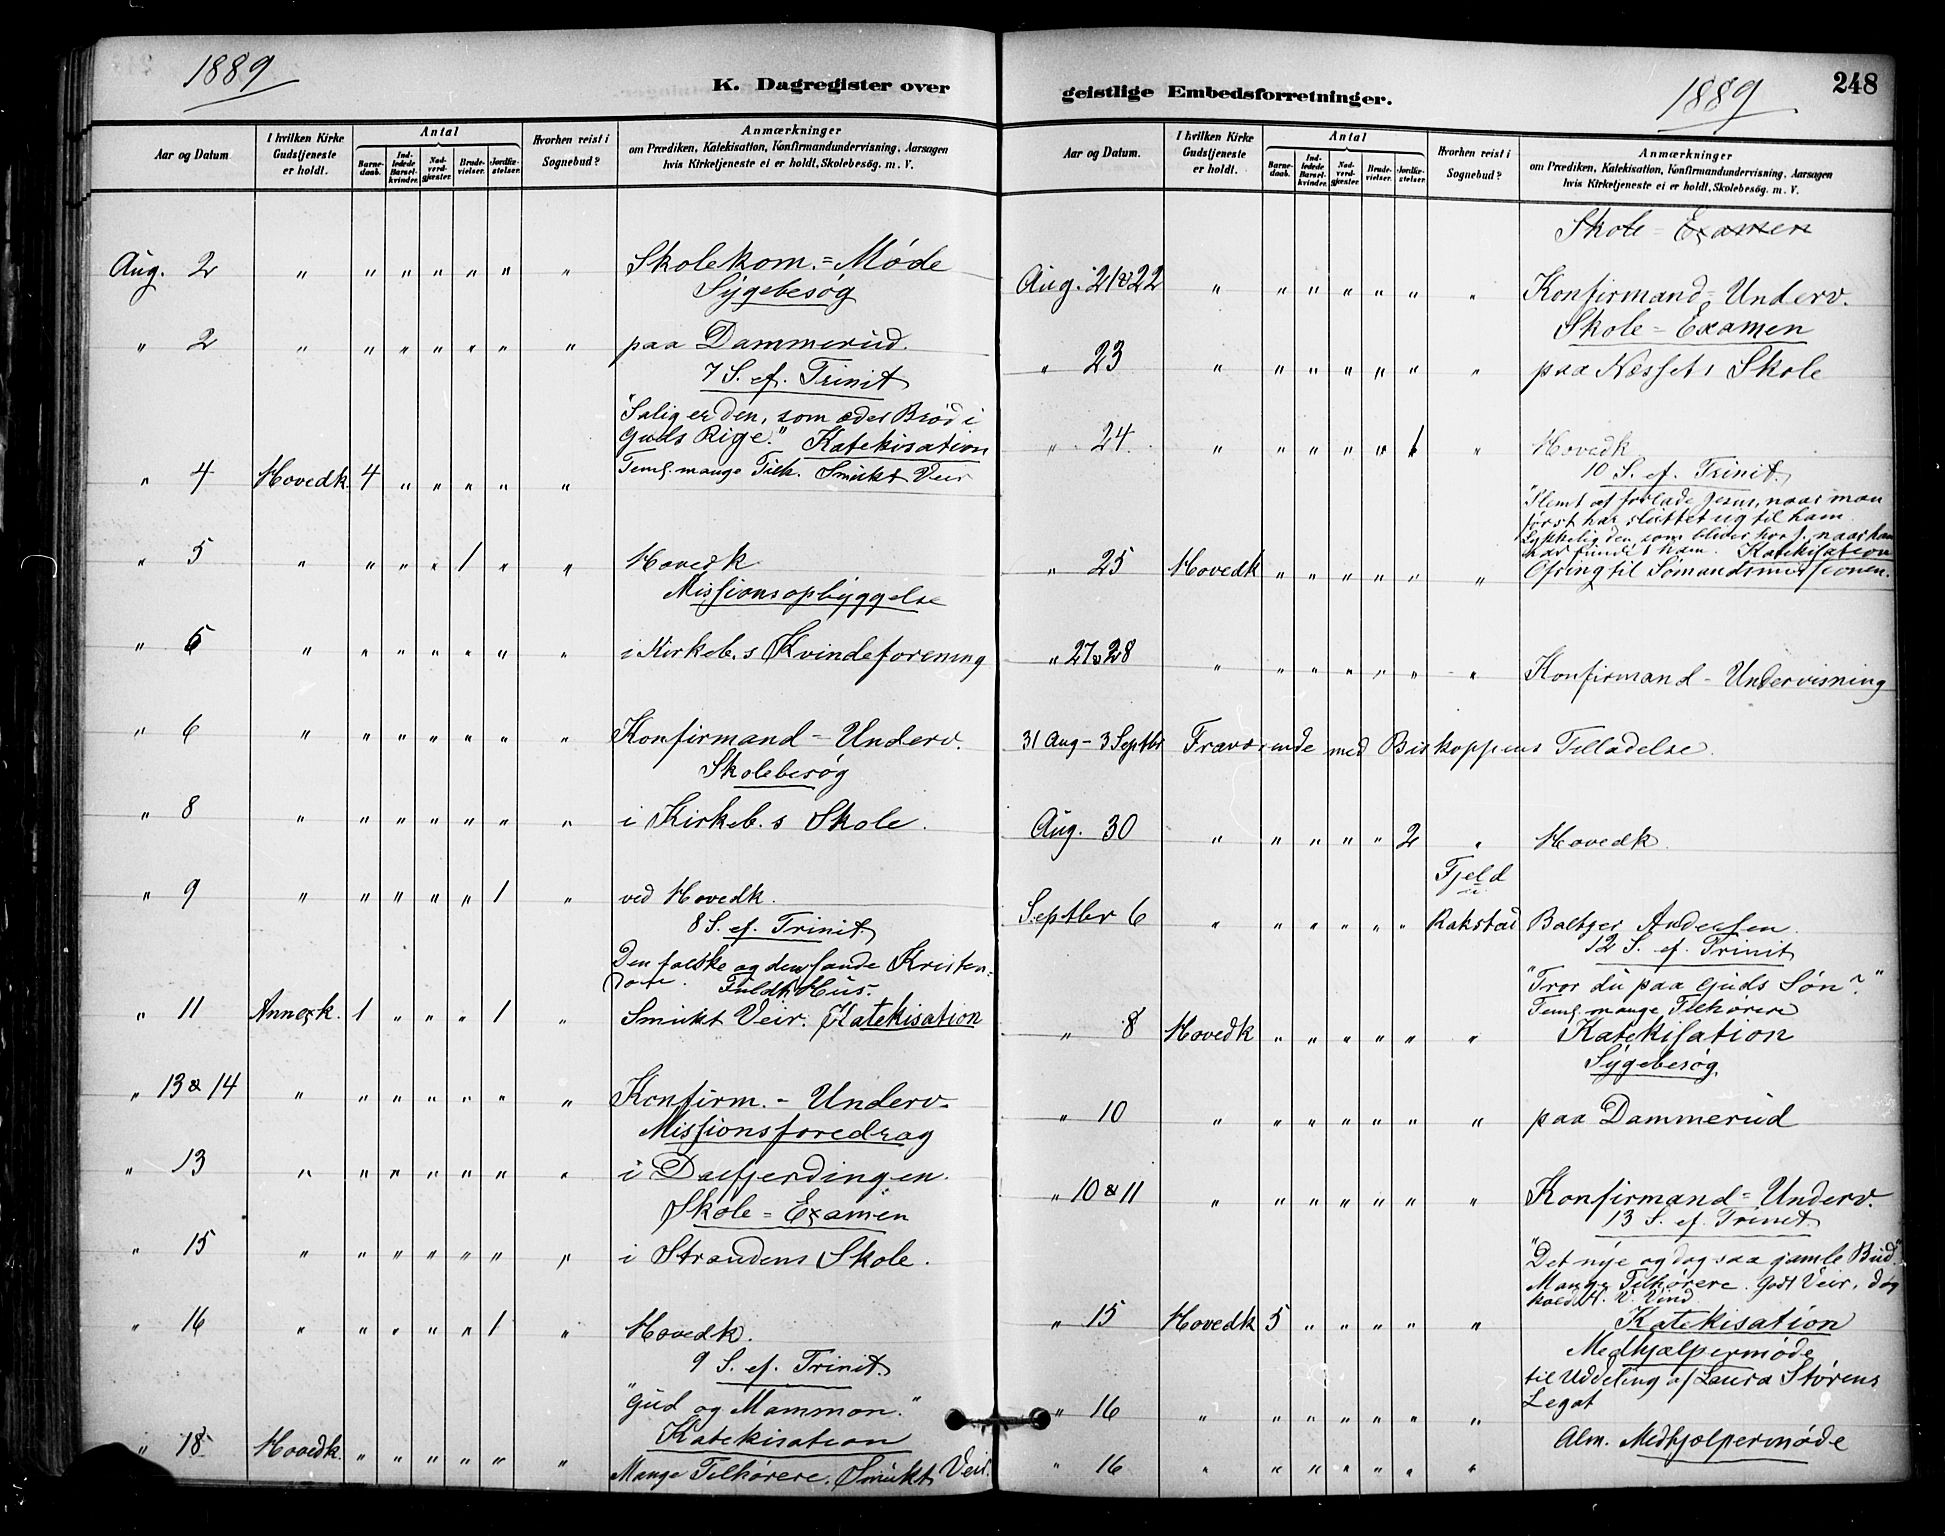 1889
K. Dagregister over
Aar og Datum
I hvilken Kirke Gudstjeneste er holdt.
Antal
Barne-daab.
Ind-ledede Barsel-kvinder.
Nad-verd-gjæster.
Brude-vielser.
Jordfæ-stelser.
Hvorhen reist i Sognebud?
Anmærkninger
om Prædiken, Katekisation, Konfirmandundervisning, Aarsagen
hvis Kirketjeneste ei er holdt, Skolebesög. m. V.
Aug. 2 " " " " " " " Skolekom.=Møde
Sygebesøg
" 2 " " " " " " " paa Dammerud.
7 S. ef. Trinit
"Salig er den, som æder Brød i
Guds Rige." Katekisation
Teml. mange Tilh. Smukt Veir
" 4 Hovedk. 4 " " " " "
" 5 " " " " 1 " " Hovedk
Missionsopbyggelse
" 5 " " " " " " " i Kirkeb.s Kvindeforening
" 6 " " " " " " " Konfirmand-Underv.
Skolebesøg
" 8 " " " " " " " i Kirkeb.s Skole.
" 9 " " " " " 1 " ved Hovedk.
8 S. ef. Trinit.
Den falske og den sande Kristen-
dom. Fuldt Hus.
" 11 Annexk. 1 " " " 1 " Smukt Veir. Katekisation
" 13 & 14 " " " " " " " Konfirm.-Underv.
Missionsforedrag
" 13 " " " " " " " i Dalfjerdingen.
Skole=Examen
" 15 " " " " " " " i Strandens Skole.
" 16 " " " " " 1 " Hovedk.
9 S. ef. Trinit.
"Gud og Mammon."
Katekisation
" 18 Hovedk. " " " " " "
Mange Tilhørere. Smukt Veir.
geistlige Embedsforretninger.
1889
248
Aar og Datum.
I hvilken Kirke Gudstjeneste er holdt.
Antal
Barne-daab.
Ind-ledede Barsel-kvinder.
Nad-verd-gjæster.
Brude-vielser.
Jordfæ-stelser.
Hvorhen reist i Sognebud?
Anmærkninger
om Prædiken, Katekisation, Konfirmandundervisning, Aarsagen
hvis Kirketjeneste ei er holdt, Skolebesög. m. V.
Skole=Examen
Aug. 21 & 22 " " " " " " " Konfirmand=Underv.
Skole=Examen
" 23 " " " " " " " paa Næssets Skole
" 24 " " " " " 1 " Hovedk
10 S. ef. Trinit.
"Slemt at forlade Jesus, naar man
først har sluttet sig til ham
Lykkelig den som bliver hos J. naar han
har fundet ham. Katekisation
" 25 Hovedk " " " " " " Ofring til Sømandsmissionen.
" 27 & 28 " " " " " " " Konfirmand-Undervisning
31 Aug-3 Septbr Fraværende med Biskoppens Tilladelse.
Aug. 30 " " " " " 2 " Hovedk.
Fjeld
u.
Septbr 6 " " " " " " Rakstad Baltzer Andersen.
12 S. ef. Trinit
"Tror du paa Guds Søn?"
Teml. mange Tilhørere
" 8 Hovedk " " " " " " Katekisation
Sygebesøg
" 10 " " " " " " " paa Dammerud
" 10 & 11 " " " " " " " Konfirmand=Underv.
13 S. ef. Trinit.
"Det nye og dog saa gamle Bud."
Mange Tilhørere. Godt Veir, dog
kold N. V. Vind.
" 15 Hovedk 5 " " " " " Katekisation
Medhjælpermøde
til Uddeling af Laura Størens
" 16 " " " " " " " Legat
Alm. Medhjælpermøde
" 16 " " " " " " "